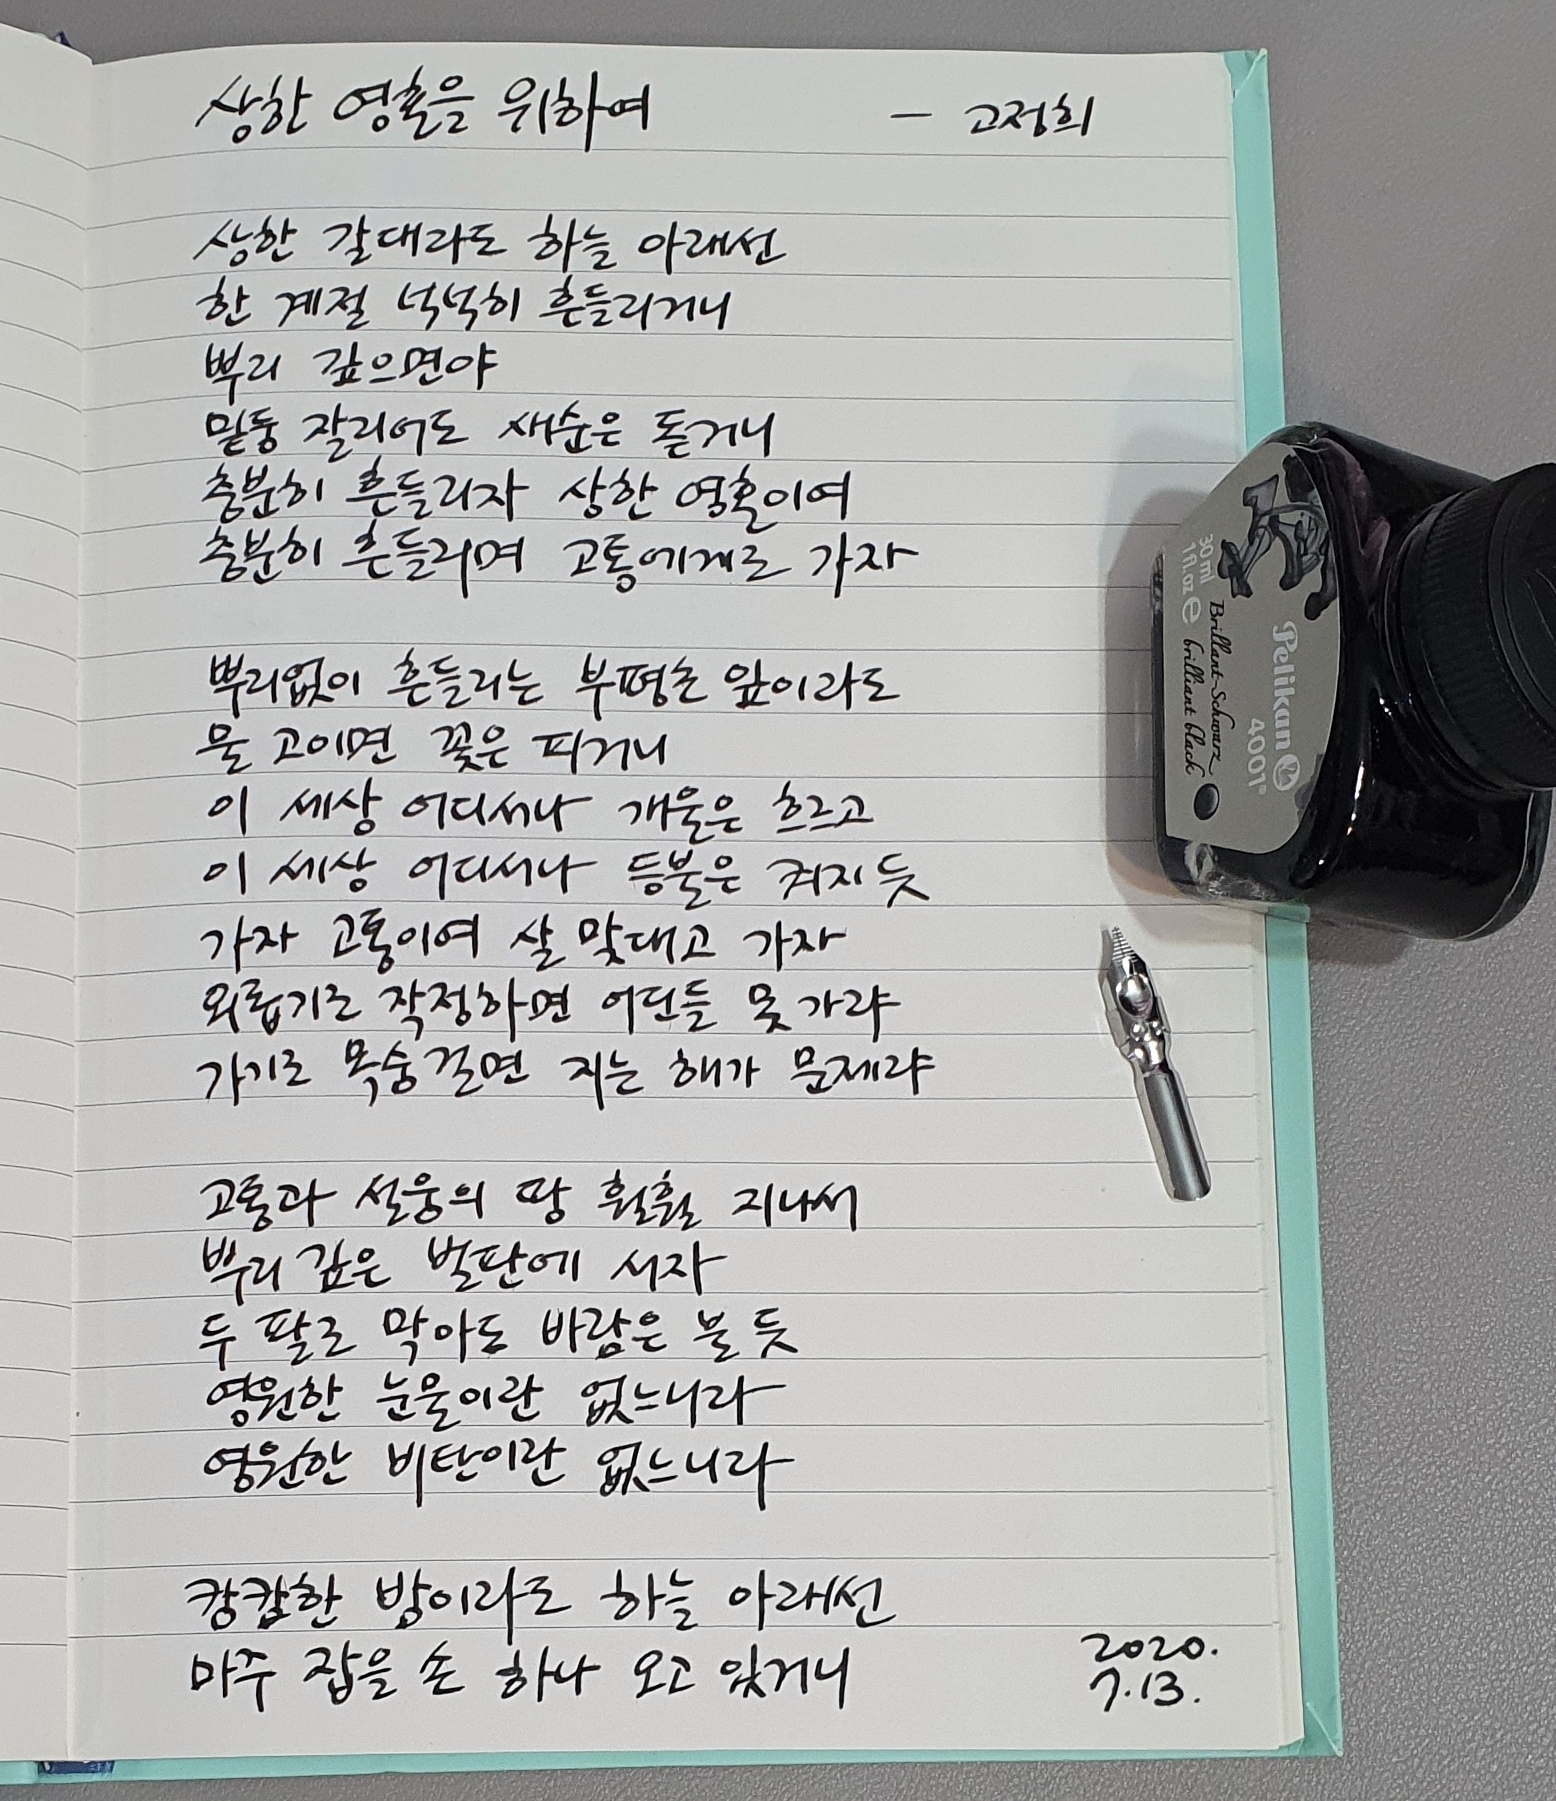 상한 영혼을 위하여 — 고정희
상한 갈대라도 하늘 아래선
한 계절 넉넉히 흔들리거니
뿌리 깊으면야
밑둥 잘리어도 새순은 돋거니
충분히 흔들리자 상한 영혼이여
충분히 흔들리며 고통에게로 가자
뿌리없이 흔들리는 부평초 잎이라도
물 고이면 꽃은 피거니
이 세상 어디서나 개울은 흐르고
이 세상 어디서나 등불은 켜지듯
가자 고통이여 살 맞대고 가자
외롭기로 작정하면 어딘들 못 가랴
가기로 목숨 걸면 지는 해가 문제랴
고통과 설움의 땅 훨훨 지나서
뿌리 깊은 벌판에 서자
두 팔로 막아도 바람은 불 듯
영원한 눈물이란 없느니라
영원한 비탄이란 없느니라
캄캄한 밤이라도 하늘 아래선
마주 잡을 손 하나 오고 있거니
2020.
7.13.
Pelikan
4001®
Brillant-Schwarz
brilliant black
30 ml
1 fl.oz e